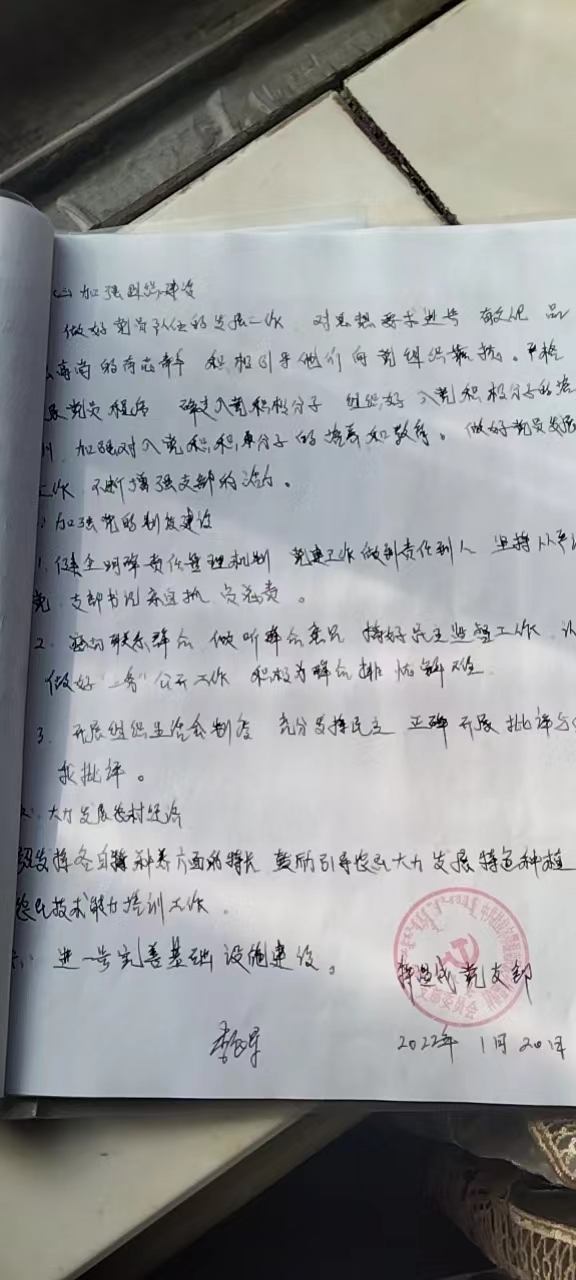 加强组织建设
做好党员队伍的发展工作 对思想要求进步 有文化 品
高尚的 积极引导他们向党组织靠拢。严格
党员程序 入党积极分子 组织好 入党积极分子的培
加强对入党积极分子的培养和教育。 做好党员发展
工作 不断增强支部的活力。
加强党的制度建设
1. 健全明确责任管理机制 党建工作做到责任到人 坚持从严治
党 支部书记亲自抓 负总责。
2. 密切联系群众 倾听群众意见 搞好民主监督工作
做好 务"公开工作 积极为群众排忧解难
3. 开展组织生活会制度 充分发挥民主 正确开展批评与
我批评。
大力发展农村经济
发挥各自 种养方面的特长 鼓励引导农民大力发展特色种植
农民技术能力培训工作.
进一步完善基础设施建设。
党支部
2022年1月20日